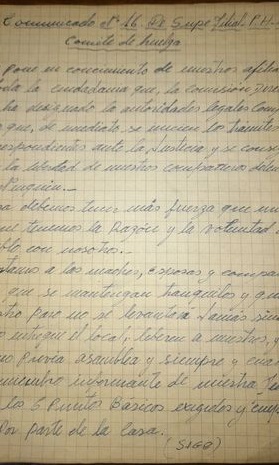 Comunicado Nº 16. De Supe Filial. F.H.
Comité de huelga
pone en conocimiento de nuestros afilia
toda la ciudadania que, la Comisión Dere
ha designado la autoridades legales comp
que, de inmediato se inicien los trámites
respondientes ante la Justicia y se consig
la libertad de nuestros compañeros deten
debemos tener más fuerza que nun
tenemos la Razón y la voluntad
con nosotros.-
a las madres, Esposas y compañ
que se mantengan tranquilos y que
paro no se levantará Jamás sin
integre el local, liberen a nuestros,
Previa asamblea y siempre y cua
informante de nuestra
los 6 Puntos Básicos exigidos y
Por parte de la Casa.